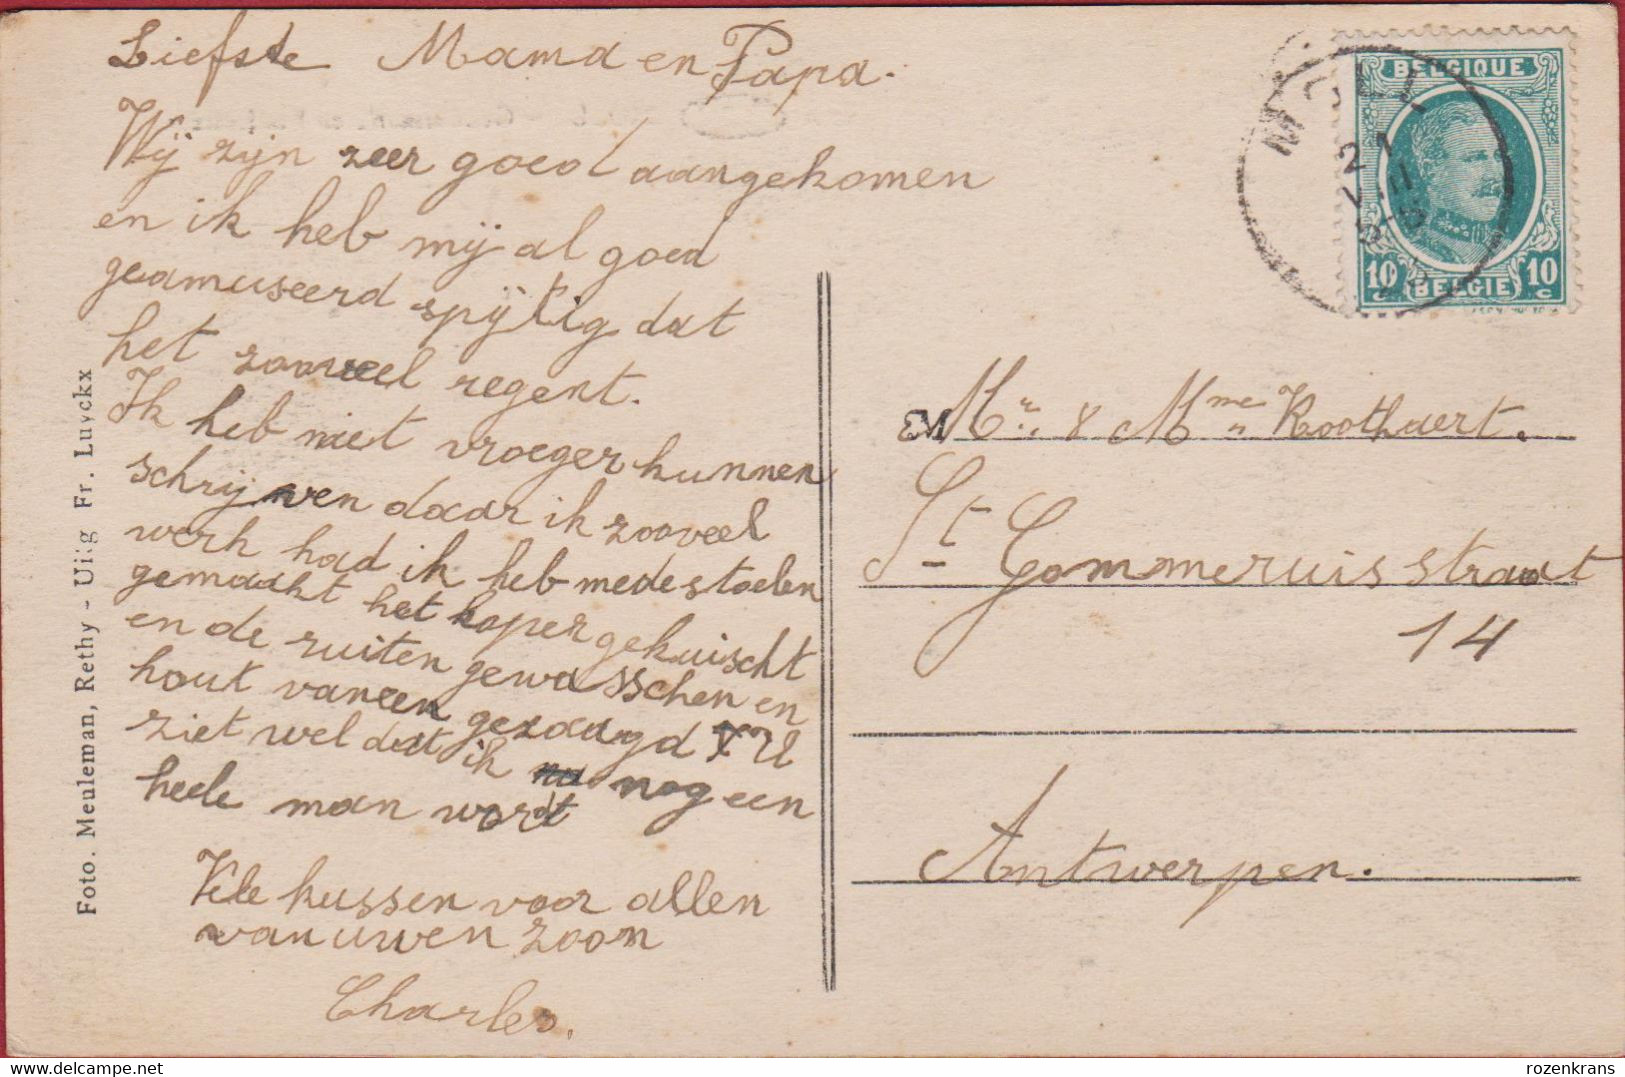 Liefste Mama en Papa.
Wij zijn zeer goed aangekomen
en ik heb mij al goed
geamuseerd spijtig dat
het zooveel regent.
Ik heb niet vroeger kunnen
schrijven daar ik zooveel
werk had ik heb mede stoelen
gemaakt het koper gekuischt
en de ruiten gewasschen en
hout vaneen gezaagd U
ziet wel dat ik nog een
heele man wordt
Vele kussen voor allen
van uwen zoon
Charles.
Foto. Meuleman, Rethy - Uitg Fr. Luyckx
BELGIQUE
10 c BELGIE 10 c
MOLL
21
M
Mr. & Mme Koothaert.
St Gommeruisstraat
14
Antwerpen.
© delcampe.net
rozenkrans